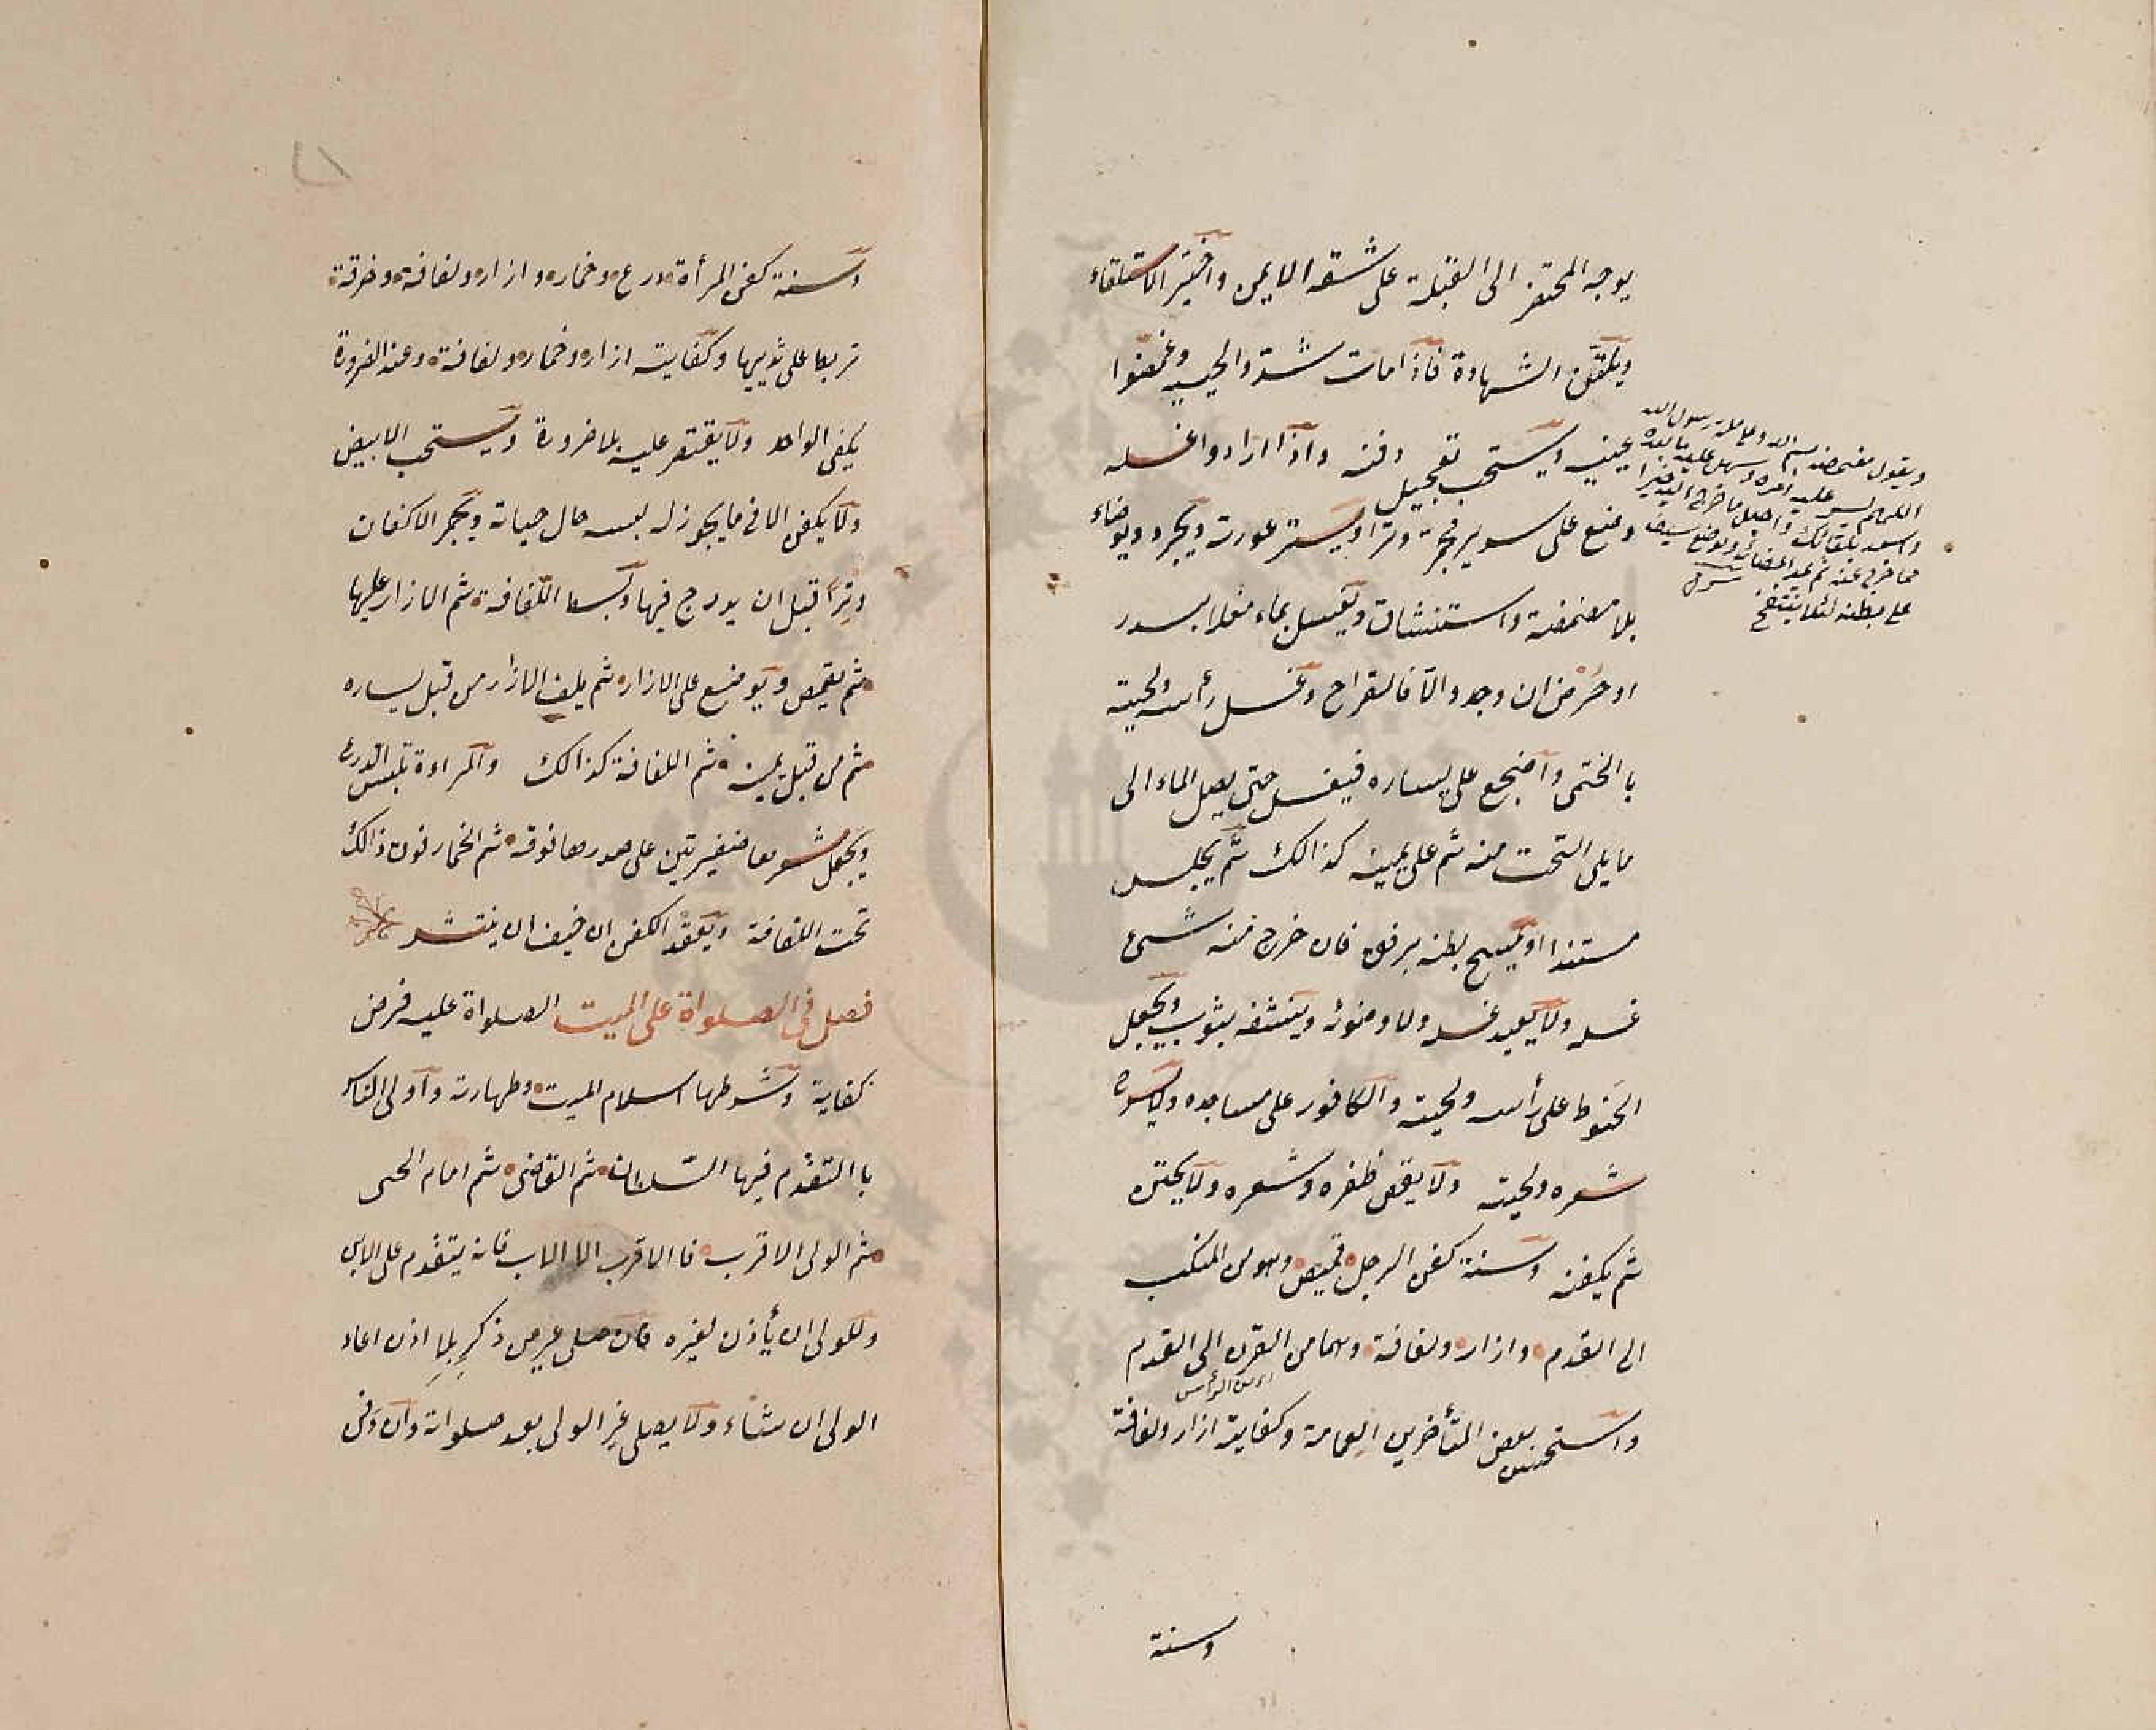 يوجه المحتضر الى القبلة على شقه الايمن واختير الاستلقاء
ويلقن الشهادة فاذا مات شدوا لحييه وغمضوا
عينيه ويستحب تعجيل دفنه واذا ارادوا غسله
وضع على سرير مجمر وترا ويستر عورته ويجرد ويوضاء
بلا مضمضة واستنشاق ويغسل بماء مغلا بسدر
او حُرْض ان وجد والا فالقراح وغسل رأسه ولحيته
با الختمى واضجع على يساره فيغسل حتى يصل الماء الى
ما يلى التحت منه ثم على يمينه كذالك ثم يجلس
مستندا او يمسح بطنه برفق فان خرج منه شئ
غسله ولا يعيد غسله ولا وضوئه وينشفه بثوب ويجعل
الحنوط على رأسه ولحيته والكافور على مساجده ولا يسرح
شعره ولحيته ولا يقص ظفره وشعره ولا يختن
ثم يكفنه وسنة كفن الرجل قميص وهو من المنكب
الى القدم وازار ولفافة وهما من القرن الى القدم
اى من الرأس
واستحسن بعض المتأخرين العمامة وكفايته ازار ولفافة
وسنة
ويقول مغمضه بسم الله وعلى ملة رسول الله
اللهم يسر عليه امره وسهل عليه ما بعده
واسعده بلقائك واجعل ما خرج اليه خيرا
مما خرج عنه ثم يمد اعضائه ويوضع سيف
على بطنه لئلا ينتفخ
وسنة كفن المرأة درع وخمار وازار ولفافة وخرقة
تربط على ثدييها وكفايته ازار وخمار ولفافة وعند الضرورة
يكفى الواحد ولا يقتصر عليه بلا ضرورة ويستحب الابيض
ولا يكفن الا فى ما يجوز له لبسه حال حياته ويجمر الاكفان
وترا قبل ان يدرج فيها وبسط اللفافة ثم الازار عليها
ثم يقمص ويوضع على الازار ثم يلف الازار من قبل يساره
ثم من قبل يمينه ثم اللفافة كذالك والمراءة تلبس الدرع
ويجعل شعرها ضفيرتين على صدرها فوقه ثم الخمار فوق ذالك
تحت اللفافة ويعقد الكفن ان خيف ان ينتشر
فصل فى الصلواة على الميت الصلواة عليه فرض
كفاية وشرطها اسلام الميت وطهارته واولى الناس
با التقدم فيها السلطان ثم القاضى ثم امام الحى
ثم الولى الاقرب فا الاقرب الا الاب فانه يتقدم على الابن
وللولى ان يأذن لغيره فان صلى غير من ذكر بلا اذن اعاد
الولى ان شاء ولا يصلى غير الولى بعد صلواته وان دفن